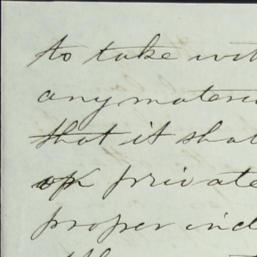 to take wit
any materi
that it shal
of private
proper ind